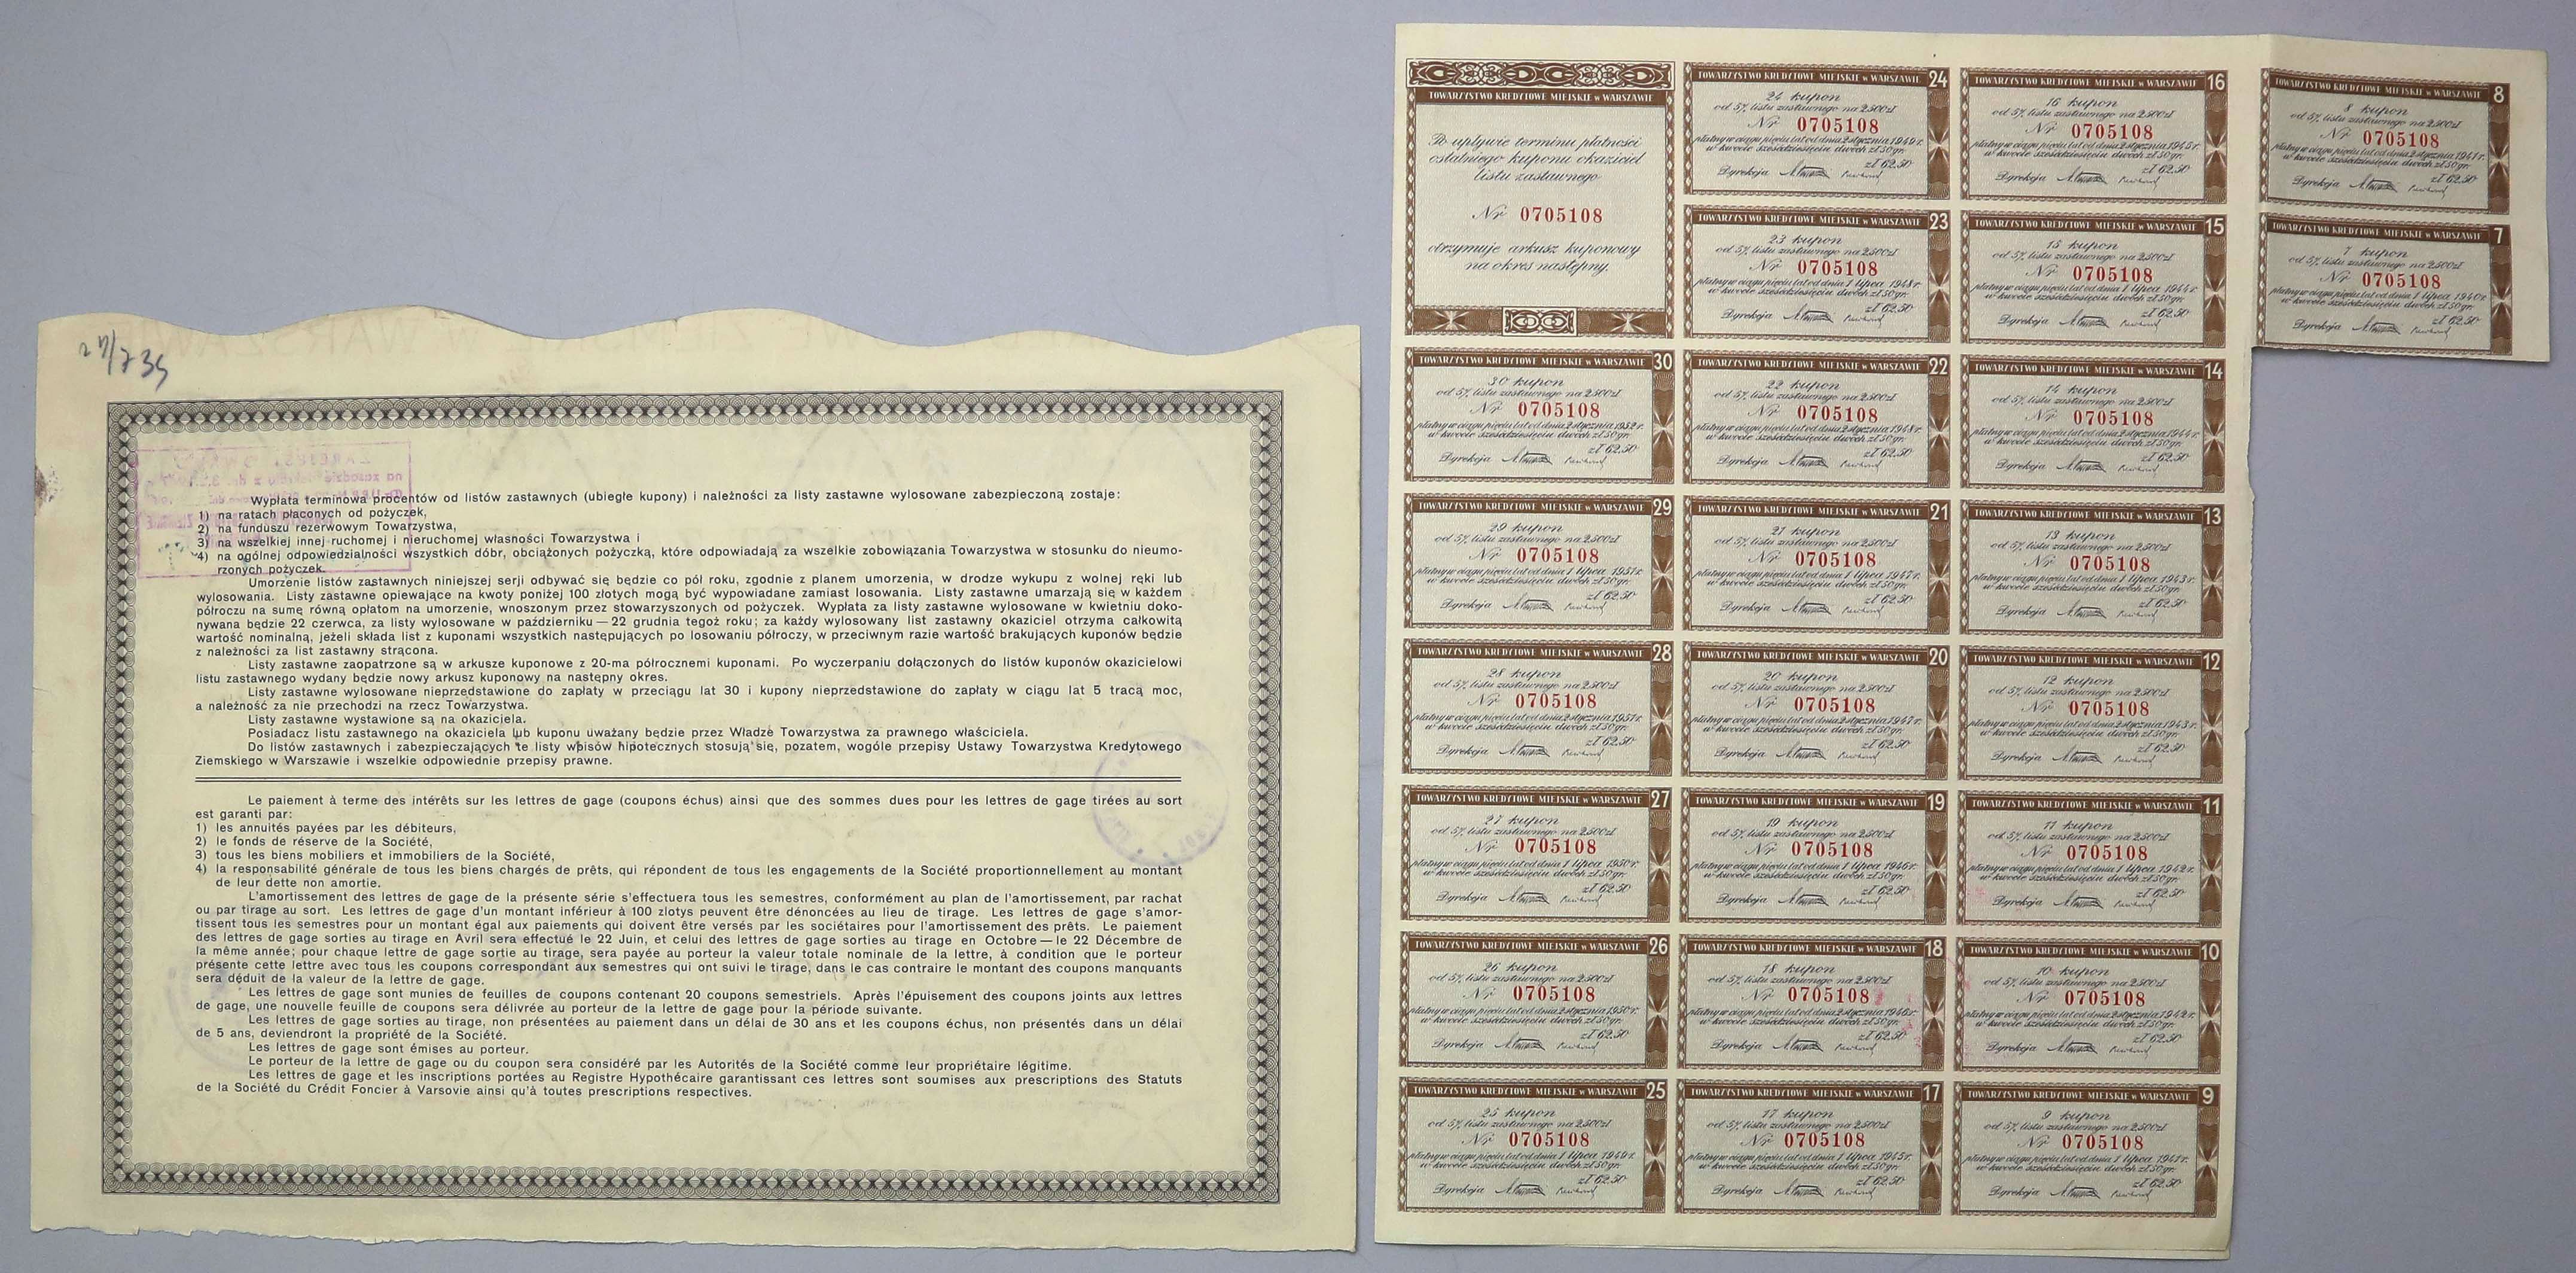 Wypłata terminowa procentów od listów zastawnych (ubiegłe kupony) i należności za listy zastawne wylosowane zabezpieczoną zostaje:
1) na ratach płaconych od pożyczek,
2) na funduszu rezerwowym Towarzystwa,
3) na wszelkiej innej ruchomej i nieruchomej własności Towarzystwa i
4) na ogólnej odpowiedzialności wszystkich dóbr, obciążonych pożyczką, które odpowiadają za wszelkie zobowiązania Towarzystwa w stosunku do nieumo-
rzonych pożyczek.
Umorzenie listów zastawnych niniejszej serji odbywać się będzie co pół roku, zgodnie z planem umorzenia, w drodze wykupu z wolnej ręki lub
wylosowania. Listy zastawne opiewające na kwoty poniżej 100 złotych mogą być wypowiadane zamiast losowania. Listy zastawne umarzają się w każdem
półroczu na sumę równą opłatom na umorzenie, wnoszonym przez stowarzyszonych od pożyczek. Wypłata za listy zastawne wylosowane w kwietniu doko-
nywana będzie 22 czerwca, za listy wylosowane w październiku — 22 grudnia tegoż roku; za każdy wylosowany list zastawny okaziciel otrzyma całkowitą
wartość nominalną, jeżeli składa list z kuponami wszystkich następujących po losowaniu półroczy, w przeciwnym razie wartość brakujących kuponów będzie
z należności za list zastawny strącona.
Listy zastawne zaopatrzone są w arkusze kuponowe z 20-ma półrocznemi kuponami. Po wyczerpaniu dołączonych do listów kuponów okazicielowi
listu zastawnego wydany będzie nowy arkusz kuponowy na następny okres.
Listy zastawne wylosowane nieprzedstawione do zapłaty w przeciągu lat 30 i kupony nieprzedstawione do zapłaty w ciągu lat 5 tracą moc,
a należność za nie przechodzi na rzecz Towarzystwa.
Listy zastawne wystawione są na okaziciela.
Posiadacz listu zastawnego na okaziciela lub kuponu uważany będzie przez Władze Towarzystwa za prawnego właściciela.
Do listów zastawnych i zabezpieczających te listy wpisów hipotecznych stosują się, pozatem, wogóle przepisy Ustawy Towarzystwa Kredytowego
Ziemskiego w Warszawie i wszelkie odpowiednie przepisy prawne.
Le paiement à terme des intérêts sur les lettres de gage (coupons échus) ainsi que des sommes dues pour les lettres de gage tirées au sort
est garanti par:
1) les annuités payées par les débiteurs,
2) le fonds de réserve de la Société,
3) tous les biens mobiliers et immobiliers de la Société,
4) la responsabilité générale de tous les biens chargés de prêts, qui répondent de tous les engagements de la Société proportionnellement au montant
de leur dette non amortie.
L'amortissement des lettres de gage de la présente série s'effectuera tous les semestres, conformément au plan de l'amortissement, par rachat
ou par tirage au sort. Les lettres de gage d'un montant inférieur à 100 zlotys peuvent être dénoncées au lieu de tirage. Les lettres de gage s'amor-
tissent tous les semestres pour un montant égal aux paiements qui doivent être versés par les sociétaires pour l'amortissement des prêts. Le paiement
des lettres de gage sorties au tirage en Avril sera effectué le 22 Juin, et celui des lettres de gage sorties au tirage en Octobre — le 22 Décembre de
la même année; pour chaque lettre de gage sortie au tirage, sera payée au porteur la valeur totale nominale de la lettre, à condition que le porteur
présente cette lettre avec tous les coupons correspondant aux semestres qui ont suivi le tirage, dans le cas contraire le montant des coupons manquants
sera déduit de la valeur de la lettre de gage.
Les lettres de gage sont munies de feuilles de coupons contenant 20 coupons semestriels. Après l'épuisement des coupons joints aux lettres
de gage, une nouvelle feuille de coupons sera délivrée au porteur de la lettre de gage pour la période suivante.
Les lettres de gage sorties au tirage, non présentées au paiement dans un délai de 30 ans et les coupons échus, non présentés dans un délai
de 5 ans, deviendront la propriété de la Société.
Les lettres de gage sont émises au porteur.
Le porteur de la lettre de gage ou du coupon sera considéré par les Autorités de la Société comme leur propriétaire légitime.
Les lettres de gage et les inscriptions portées au Registre Hypothécaire garantissant ces lettres sont soumises aux prescriptions des Statuts
de la Société du Crédit Foncier à Varsovie ainsi qu'à toutes prescriptions respectives.
TOWARZYSTWO KREDYTOWE MIEJSKIE w WARSZAWIE
Po upływie terminu płatności
ostatniego kuponu okaziciel
listu zastawnego
Nr 0705108
otrzymuje arkusz kuponowy
na okres następny.
TOWARZYSTWO KREDYTOWE MIEJSKIE w WARSZAWIE 30
30 kupon
od 5% listu zastawnego na 2500 zł
Nr 0705108
płatny w ciągu pięciu lat od dnia 2 stycznia 1952 r.
w kwocie sześćdziesięciu dwóch zł 50 gr.
zł 62.50
Dyrekcja
TOWARZYSTWO KREDYTOWE MIEJSKIE w WARSZAWIE 29
29 kupon
od 5% listu zastawnego na 2500 zł
Nr 0705108
płatny w ciągu pięciu lat od dnia 1 lipca 1951 r.
w kwocie sześćdziesięciu dwóch zł 50 gr.
zł 62.50
Dyrekcja
TOWARZYSTWO KREDYTOWE MIEJSKIE w WARSZAWIE 28
28 kupon
od 5% listu zastawnego na 2500 zł
Nr 0705108
płatny w ciągu pięciu lat od dnia 2 stycznia 1951 r.
w kwocie sześćdziesięciu dwóch zł 50 gr.
zł 62.50
Dyrekcja
TOWARZYSTWO KREDYTOWE MIEJSKIE w WARSZAWIE 27
27 kupon
od 5% listu zastawnego na 2500 zł
Nr 0705108
płatny w ciągu pięciu lat od dnia 1 lipca 1950 r.
w kwocie sześćdziesięciu dwóch zł 50 gr.
zł 62.50
Dyrekcja
TOWARZYSTWO KREDYTOWE MIEJSKIE w WARSZAWIE 26
26 kupon
od 5% listu zastawnego na 2500 zł
Nr 0705108
płatny w ciągu pięciu lat od dnia 2 stycznia 1950 r.
w kwocie sześćdziesięciu dwóch zł 50 gr.
zł 62.50
Dyrekcja
TOWARZYSTWO KREDYTOWE MIEJSKIE w WARSZAWIE 25
25 kupon
od 5% listu zastawnego na 2500 zł
Nr 0705108
płatny w ciągu pięciu lat od dnia 1 lipca 1949 r.
w kwocie sześćdziesięciu dwóch zł 50 gr.
zł 62.50
Dyrekcja
TOWARZYSTWO KREDYTOWE MIEJSKIE w WARSZAWIE 24
24 kupon
od 5% listu zastawnego na 2500 zł
Nr 0705108
płatny w ciągu pięciu lat od dnia 2 stycznia 1949 r.
w kwocie sześćdziesięciu dwóch zł 50 gr.
zł 62.50
Dyrekcja
TOWARZYSTWO KREDYTOWE MIEJSKIE w WARSZAWIE 23
23 kupon
od 5% listu zastawnego na 2500 zł
Nr 0705108
płatny w ciągu pięciu lat od dnia 1 lipca 1948 r.
w kwocie sześćdziesięciu dwóch zł 50 gr.
zł 62.50
Dyrekcja
TOWARZYSTWO KREDYTOWE MIEJSKIE w WARSZAWIE 22
22 kupon
od 5% listu zastawnego na 2500 zł
Nr 0705108
płatny w ciągu pięciu lat od dnia 2 stycznia 1948 r.
w kwocie sześćdziesięciu dwóch zł 50 gr.
zł 62.50
Dyrekcja
TOWARZYSTWO KREDYTOWE MIEJSKIE w WARSZAWIE 21
21 kupon
od 5% listu zastawnego na 2500 zł
Nr 0705108
płatny w ciągu pięciu lat od dnia 1 lipca 1947 r.
w kwocie sześćdziesięciu dwóch zł 50 gr.
zł 62.50
Dyrekcja
TOWARZYSTWO KREDYTOWE MIEJSKIE w WARSZAWIE 20
20 kupon
od 5% listu zastawnego na 2500 zł
Nr 0705108
płatny w ciągu pięciu lat od dnia 2 stycznia 1947 r.
w kwocie sześćdziesięciu dwóch zł 50 gr.
zł 62.50
Dyrekcja
TOWARZYSTWO KREDYTOWE MIEJSKIE w WARSZAWIE 19
19 kupon
od 5% listu zastawnego na 2500 zł
Nr 0705108
płatny w ciągu pięciu lat od dnia 1 lipca 1946 r.
w kwocie sześćdziesięciu dwóch zł 50 gr.
zł 62.50
Dyrekcja
TOWARZYSTWO KREDYTOWE MIEJSKIE w WARSZAWIE 18
18 kupon
od 5% listu zastawnego na 2500 zł
Nr 0705108
płatny w ciągu pięciu lat od dnia 2 stycznia 1946 r.
w kwocie sześćdziesięciu dwóch zł 50 gr.
zł 62.50
Dyrekcja
TOWARZYSTWO KREDYTOWE MIEJSKIE w WARSZAWIE 17
17 kupon
od 5% listu zastawnego na 2500 zł
Nr 0705108
płatny w ciągu pięciu lat od dnia 1 lipca 1945 r.
w kwocie sześćdziesięciu dwóch zł 50 gr.
zł 62.50
Dyrekcja
TOWARZYSTWO KREDYTOWE MIEJSKIE w WARSZAWIE 16
16 kupon
od 5% listu zastawnego na 2500 zł
Nr 0705108
płatny w ciągu pięciu lat od dnia 2 stycznia 1945 r.
w kwocie sześćdziesięciu dwóch zł 50 gr.
zł 62.50
Dyrekcja
TOWARZYSTWO KREDYTOWE MIEJSKIE w WARSZAWIE 15
15 kupon
od 5% listu zastawnego na 2500 zł
Nr 0705108
płatny w ciągu pięciu lat od dnia 1 lipca 1944 r.
w kwocie sześćdziesięciu dwóch zł 50 gr.
zł 62.50
Dyrekcja
TOWARZYSTWO KREDYTOWE MIEJSKIE w WARSZAWIE 14
14 kupon
od 5% listu zastawnego na 2500 zł
Nr 0705108
płatny w ciągu pięciu lat od dnia 2 stycznia 1944 r.
w kwocie sześćdziesięciu dwóch zł 50 gr.
zł 62.50
Dyrekcja
TOWARZYSTWO KREDYTOWE MIEJSKIE w WARSZAWIE 13
13 kupon
od 5% listu zastawnego na 2500 zł
Nr 0705108
płatny w ciągu pięciu lat od dnia 1 lipca 1943 r.
w kwocie sześćdziesięciu dwóch zł 50 gr.
zł 62.50
Dyrekcja
TOWARZYSTWO KREDYTOWE MIEJSKIE w WARSZAWIE 12
12 kupon
od 5% listu zastawnego na 2500 zł
Nr 0705108
płatny w ciągu pięciu lat od dnia 2 stycznia 1943 r.
w kwocie sześćdziesięciu dwóch zł 50 gr.
zł 62.50
Dyrekcja
TOWARZYSTWO KREDYTOWE MIEJSKIE w WARSZAWIE 11
11 kupon
od 5% listu zastawnego na 2500 zł
Nr 0705108
płatny w ciągu pięciu lat od dnia 1 lipca 1942 r.
w kwocie sześćdziesięciu dwóch zł 50 gr.
zł 62.50
Dyrekcja
TOWARZYSTWO KREDYTOWE MIEJSKIE w WARSZAWIE 10
10 kupon
od 5% listu zastawnego na 2500 zł
Nr 0705108
płatny w ciągu pięciu lat od dnia 2 stycznia 1942 r.
w kwocie sześćdziesięciu dwóch zł 50 gr.
zł 62.50
Dyrekcja
TOWARZYSTWO KREDYTOWE MIEJSKIE w WARSZAWIE 9
9 kupon
od 5% listu zastawnego na 2500 zł
Nr 0705108
płatny w ciągu pięciu lat od dnia 1 lipca 1941 r.
w kwocie sześćdziesięciu dwóch zł 50 gr.
zł 62.50
Dyrekcja
TOWARZYSTWO KREDYTOWE MIEJSKIE w WARSZAWIE 8
8 kupon
od 5% listu zastawnego na 2500 zł
Nr 0705108
płatny w ciągu pięciu lat od dnia 2 stycznia 1941 r.
w kwocie sześćdziesięciu dwóch zł 50 gr.
zł 62.50
Dyrekcja
TOWARZYSTWO KREDYTOWE MIEJSKIE w WARSZAWIE 7
7 kupon
od 5% listu zastawnego na 2500 zł
Nr 0705108
płatny w ciągu pięciu lat od dnia 1 lipca 1940 r.
w kwocie sześćdziesięciu dwóch zł 50 gr.
zł 62.50
Dyrekcja